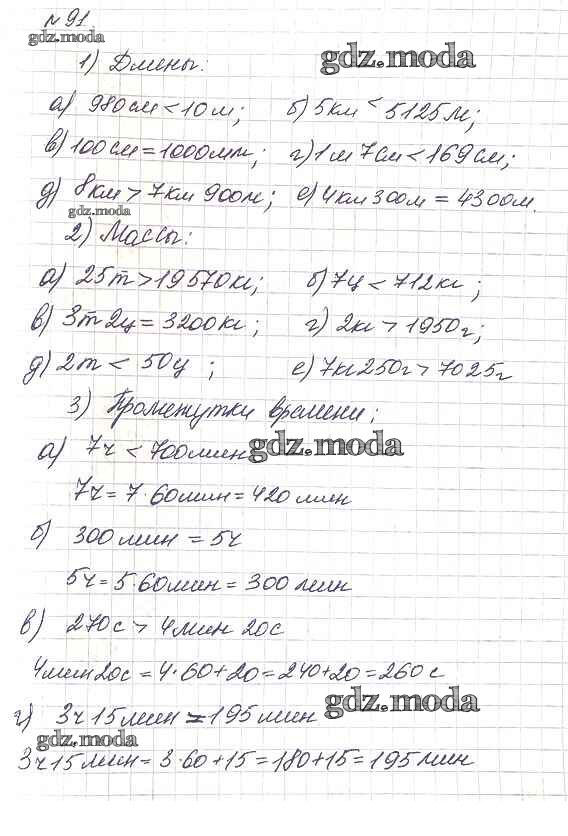 № 91
gdz.moda
gdz.moda
1) Длины:
а) 980см < 10м; б) 5км < 5125м;
в) 100см = 1000мм; г) 1м 7см < 169см;
д) 8км > 7км 900м; е) 4км 300м = 4300м.
gdz.moda
2) Массы:
а) 25т > 19570кг; б) 7ц < 712кг;
в) 3т 2ц = 3200кг; г) 2кг > 1950г;
д) 2т < 50ц; е) 7кг 250г > 7025г
3) Промежутки времени:
а) 7ч < 700мин gdz.moda
7ч = 7·60мин = 420мин
б) 300мин = 5ч
5ч = 5·60мин = 300мин
в) 270с > 4мин 20с
4мин 20с = 4·60+20 = 240+20 = 260с
г) 3ч 15мин = 195мин gdz.moda
gdz.moda
3ч 15мин = 3·60+15 = 180+15 = 195мин